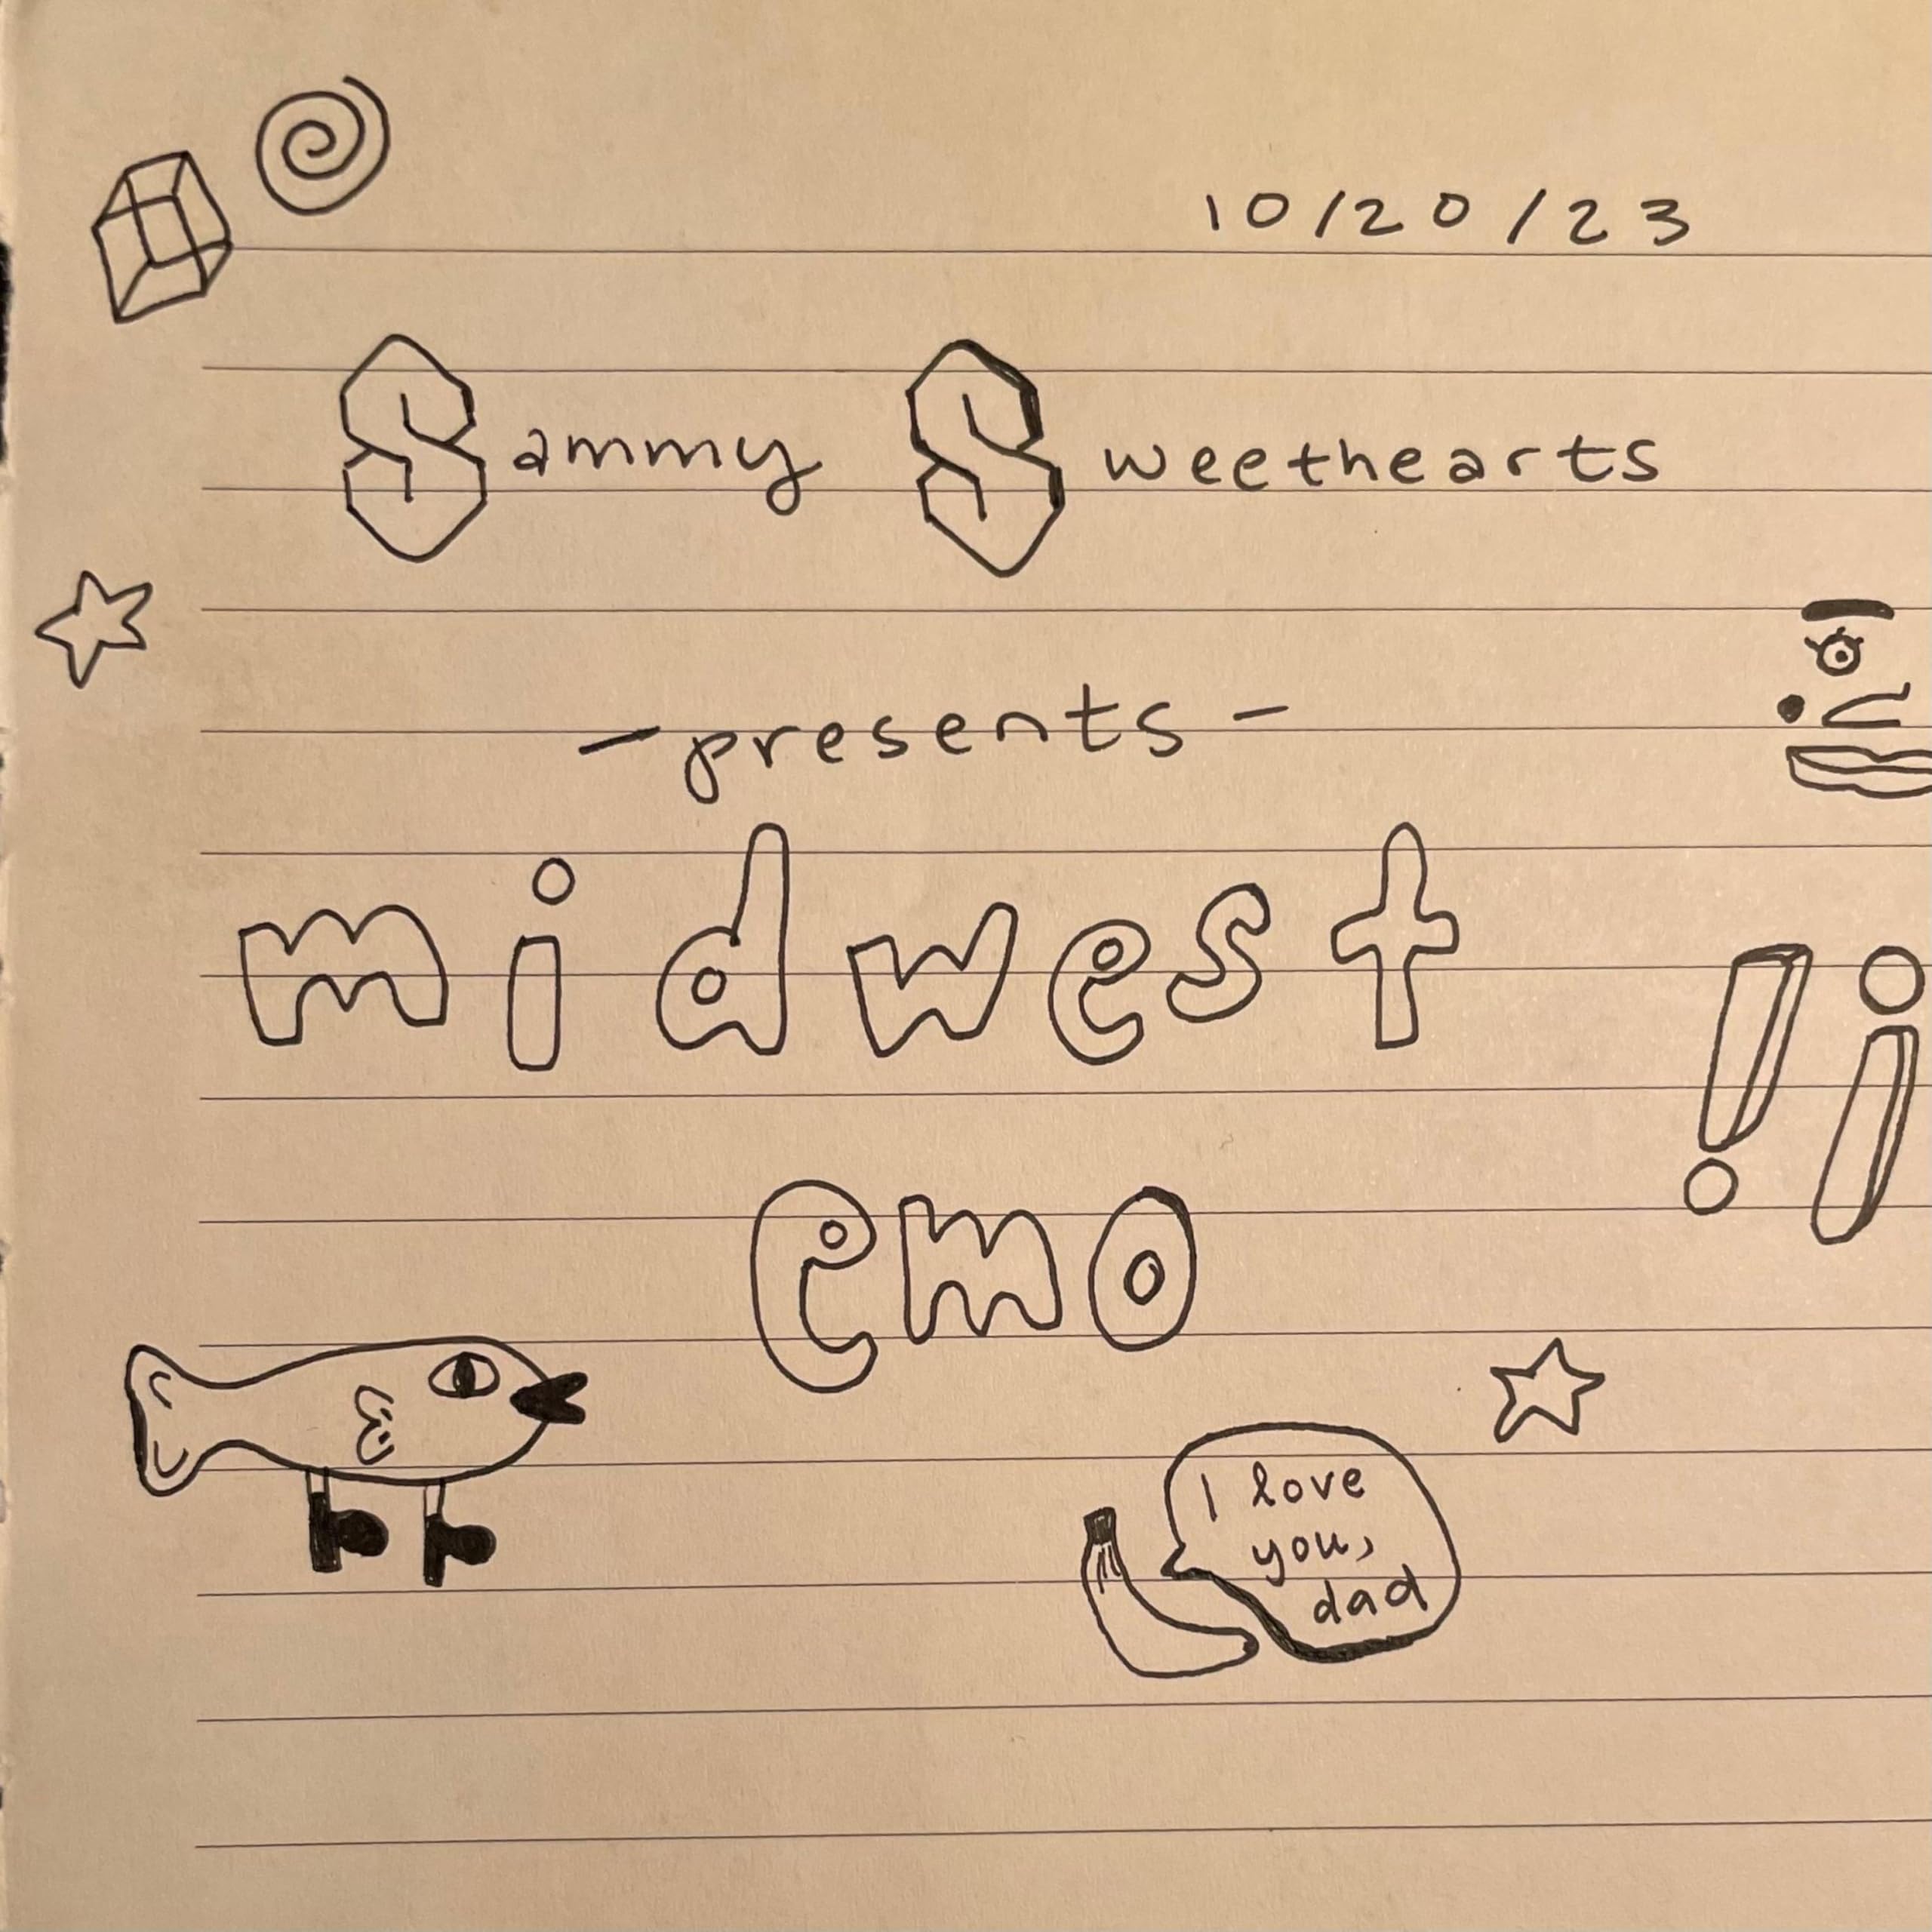 10/20/23
Sammy Sweethearts
-presents-
midwest
emo
!¡
I love
you,
dad